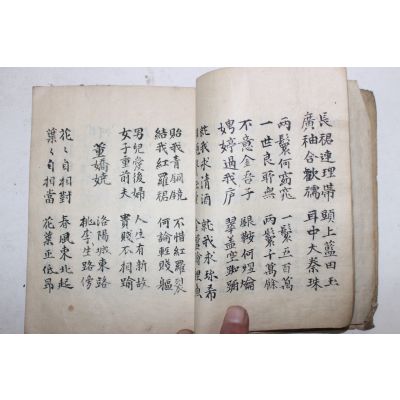 長裾連理帶 頭上藍田玉
廣袖合歡襦 耳中大秦珠
兩鬟何窈窕 一鬟五百萬
一世良所無 兩鬟千萬餘
不意金吾子 銀鞍何煜爚
娉婷過我庐 翠盖空踟躕
就我求清酒 就我求珎肴
貽我青銅鏡 不惜紅羅裂
結我紅羅裙 何論輕賤軀
男兒愛後婦 人生有新故
女子重前夫 貴賤不相踰
董嬌娆
洛陽城東路
桃李生路傍
花〻自相對 春風東北起
葉〻自相當 花葉正低昂